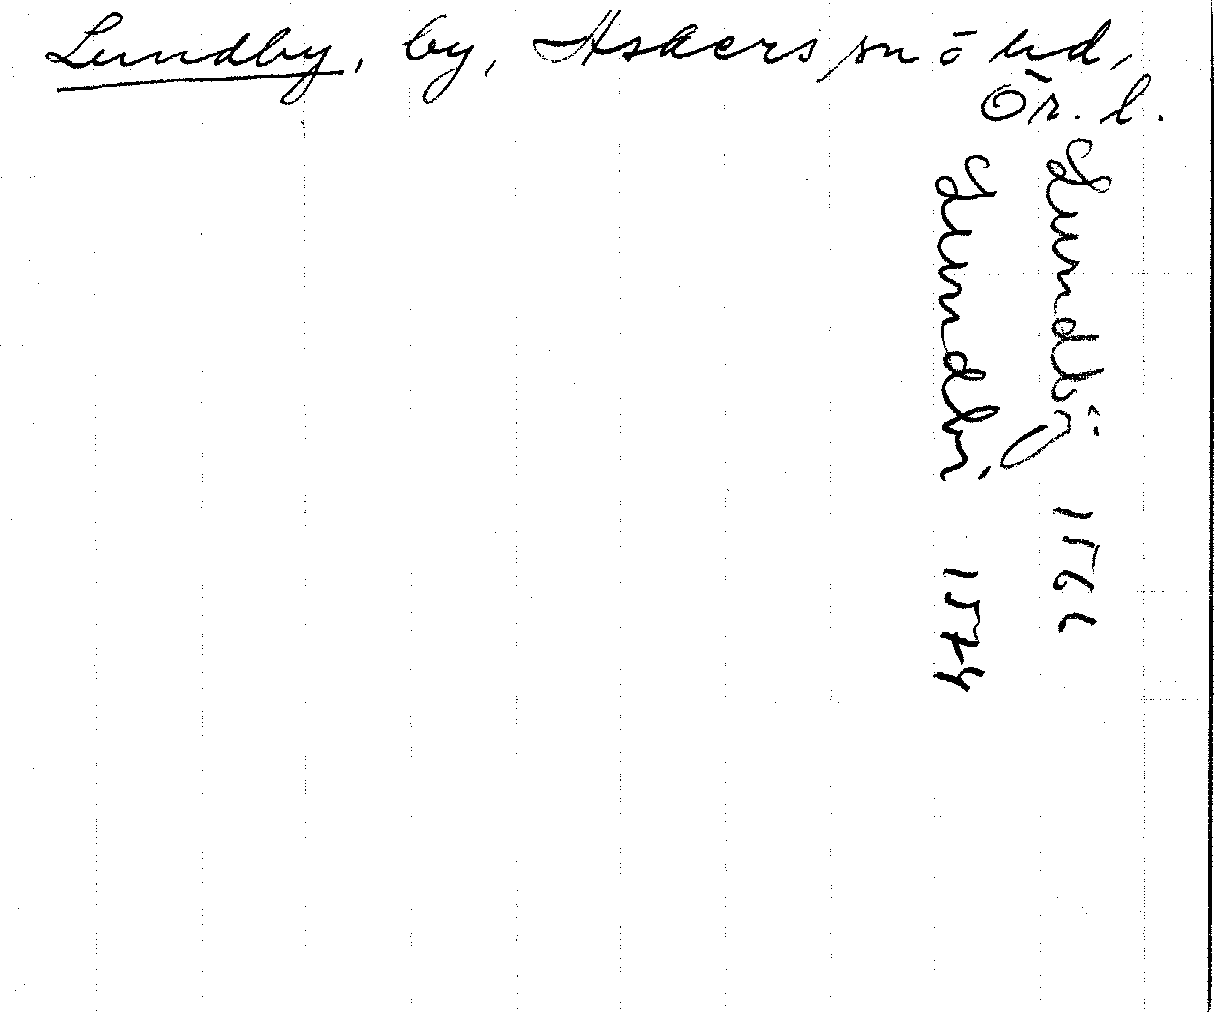 Lundby, by, Askers sn o hd,
Ör. l.
Lundbÿ 1566
Lundbi 1574